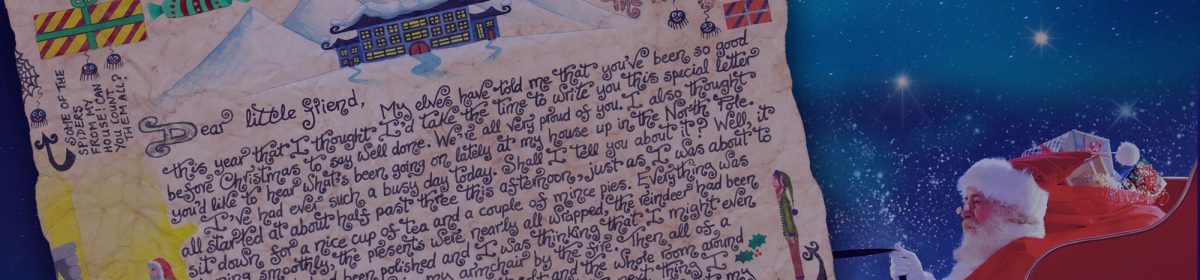 SOME OF THE
SPIDERS
FROM MY
HOUSE! CAN
YOU COUNT
THEM ALL?
Dear little friend, My elves have told me that you've been so good
this year that I thought I'd take the time to write you this special letter
before Christmas to say well done. We're all very proud of you. I also thought
you'd like to hear what's been going on lately at my house up in the North Pole.
I've had ever such a busy day today. Shall I tell you about it? Well, it
all started at about half past three this afternoon, just as I was about to
sit down for a nice cup of tea and a couple of mince pies. Everything was
going smoothly, the presents were nearly all wrapped, the reindeer had been
been polished and I was thinking that I might even
my armchair by the fire. Then, all of
and the whole room around
thing I
my